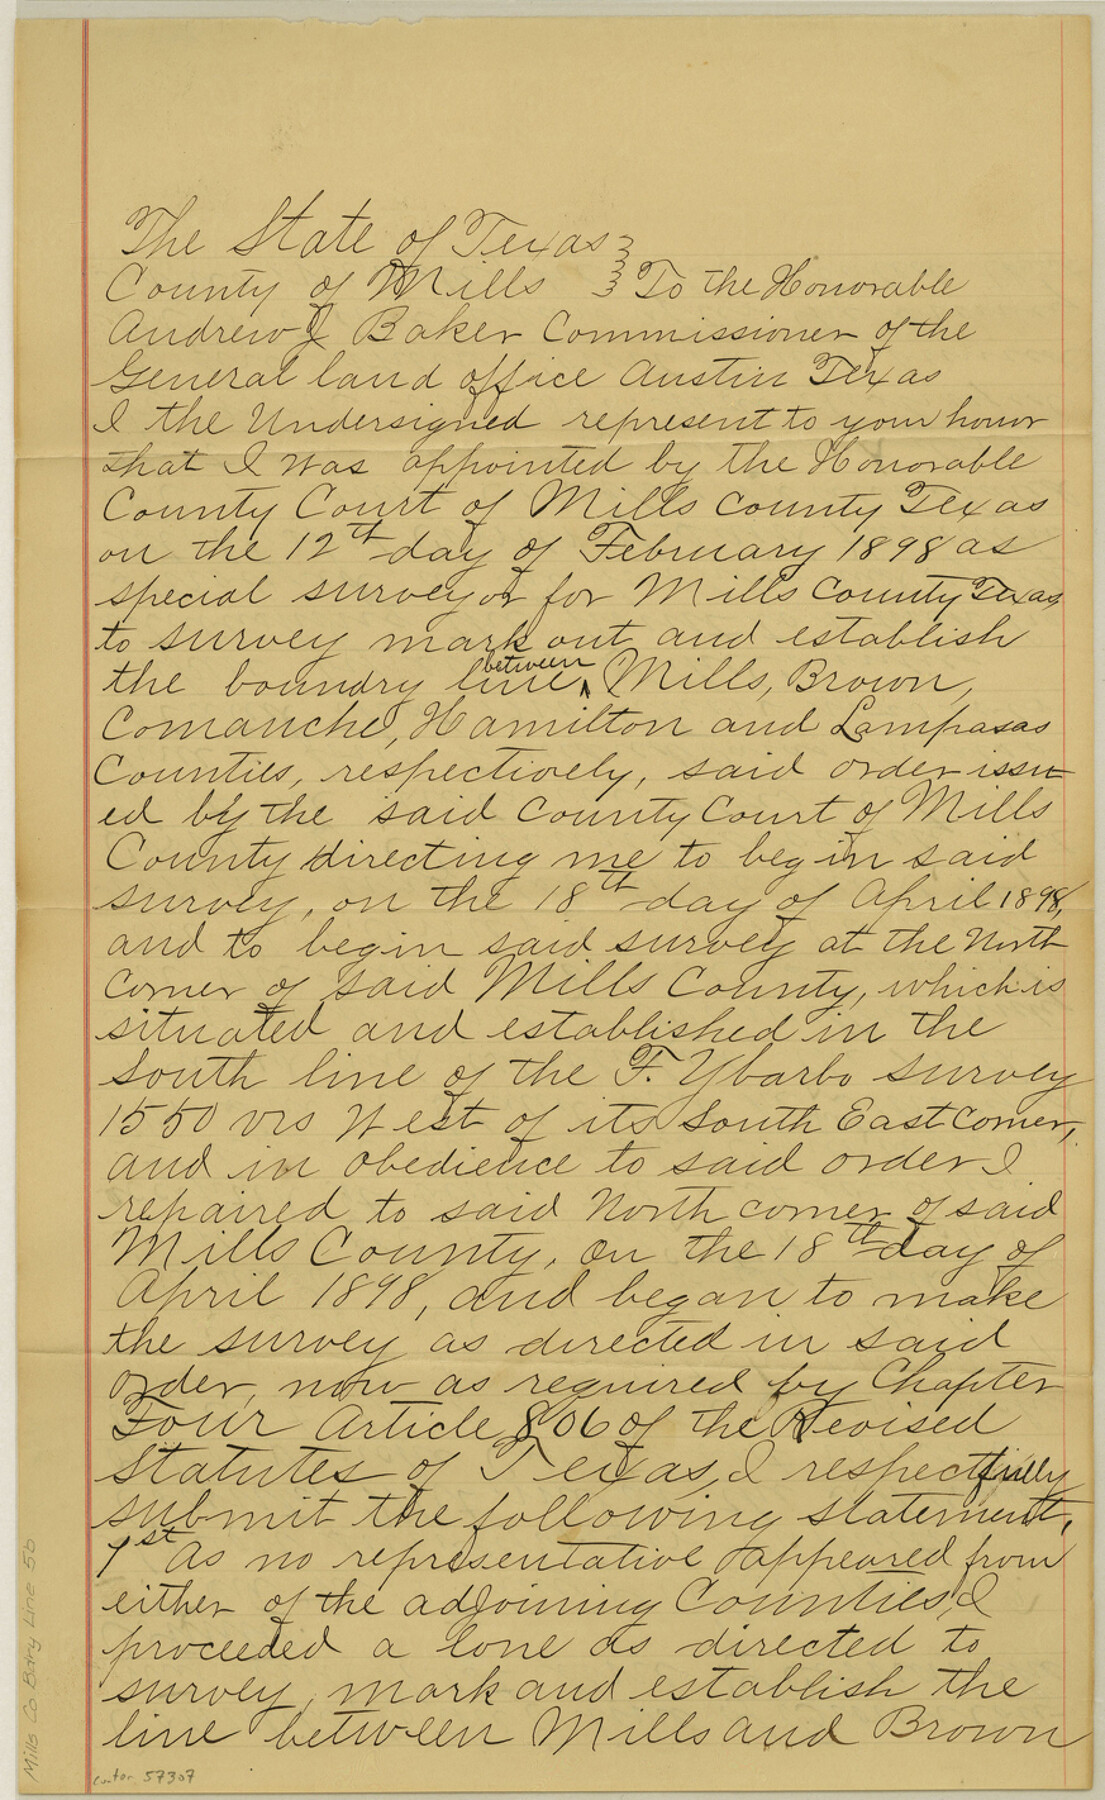 The State of Texas }
County of Mills } To the Honorable
Andrew J Baker Commissioner of the
General land office Austin Texas
I the Undersigned represent to your honor
that I was appointed by the Honorable
County Court of Mills County Texas
on the 12th day of February 1898 as
special surveyor for Mills County Texas,
to survey mark out and establish
the boundry line between Mills, Brown,
Comanche, Hamilton and Lampasas
Counties, respectively, said order issu
ed by the said County Court of Mills
County directing me to begin said
survey, on the 18th day of April 1898,
and to begin said survey at the North
Corner of said Mills County, which is
situated and established in the
South line of the F. Ybarbo survey
1550 vrs West of its South East Corner,
and in obedience to said order I
repaired to said North corner of said
Mills County, on the 18th day of
April 1898, and began to make
the survey as directed in said
order, now as required by Chapter
Four Article 806 of the Revised
Statutes of Texas, I respectfully
submit the following statement,
1st As no representative appeared from
either of the adjoining Counties, I
proceeded a lone as directed to
survey, mark and establish the
line between Mills and Brown
Mills Co Bdry Line 5b
counter 57307